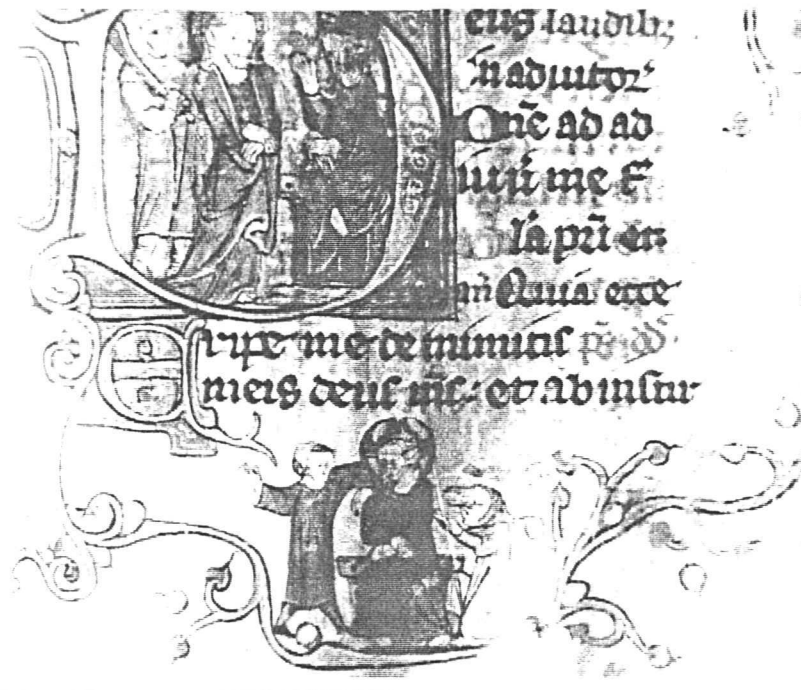 eius laudib;
In adiutor
One ad ad
iuuū me f
la pri et
m Quia ecce
Eripe me de inimicis
meis deus ms: et ab insur